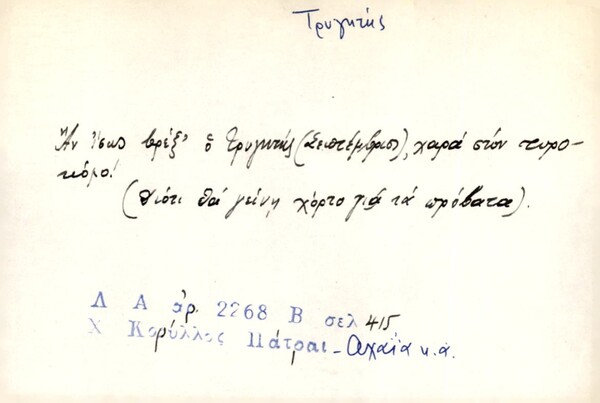 Τρυγητής
Ἄν ἴσως βρέξ' ὁ Τρυγητής (Σεπτέμβριο), χαρά στόν τυρο-
κόμο!
(Διότι θά γείνη χόρτο γιά τά πρόβατα).
Λ Α ἀρ. 2268 Β σελ 415
Χ Κορύλλος Πάτραι - Αχαΐα κ.ἀ.